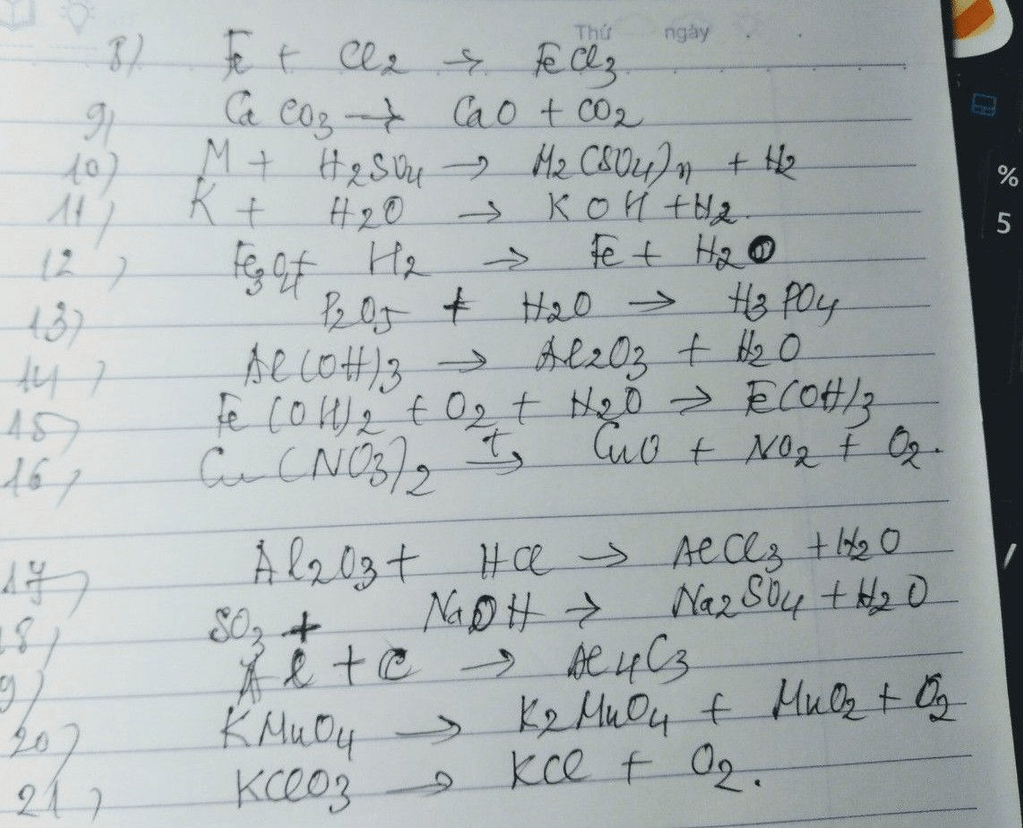 Thứ ngày
8) Fe + Cl2 → FeCl3
9) CaCO3 → CaO + CO2
10) M + H2SO4 → M2(SO4)n + H2
11) K + H2O → KOH + H2.
12) Fe3O4 + H2 → Fe + H2O
13) P2O5 + H2O → H3PO4
14) Al(OH)3 → Al2O3 + H2O
15) Fe(OH)2 + O2 + H2O → Fe(OH)3
16) Cu(NO3)2 t→ CuO + NO2 + O2.
17) Al2O3 + HCl → AlCl3 + H2O
18) SO3 + NaOH → Na2SO4 + H2O
9) Al + C → Al4C3
20) KMnO4 → K2MnO4 + MnO2 + O2
21) KClO3 → KCl + O2.
%
5
/